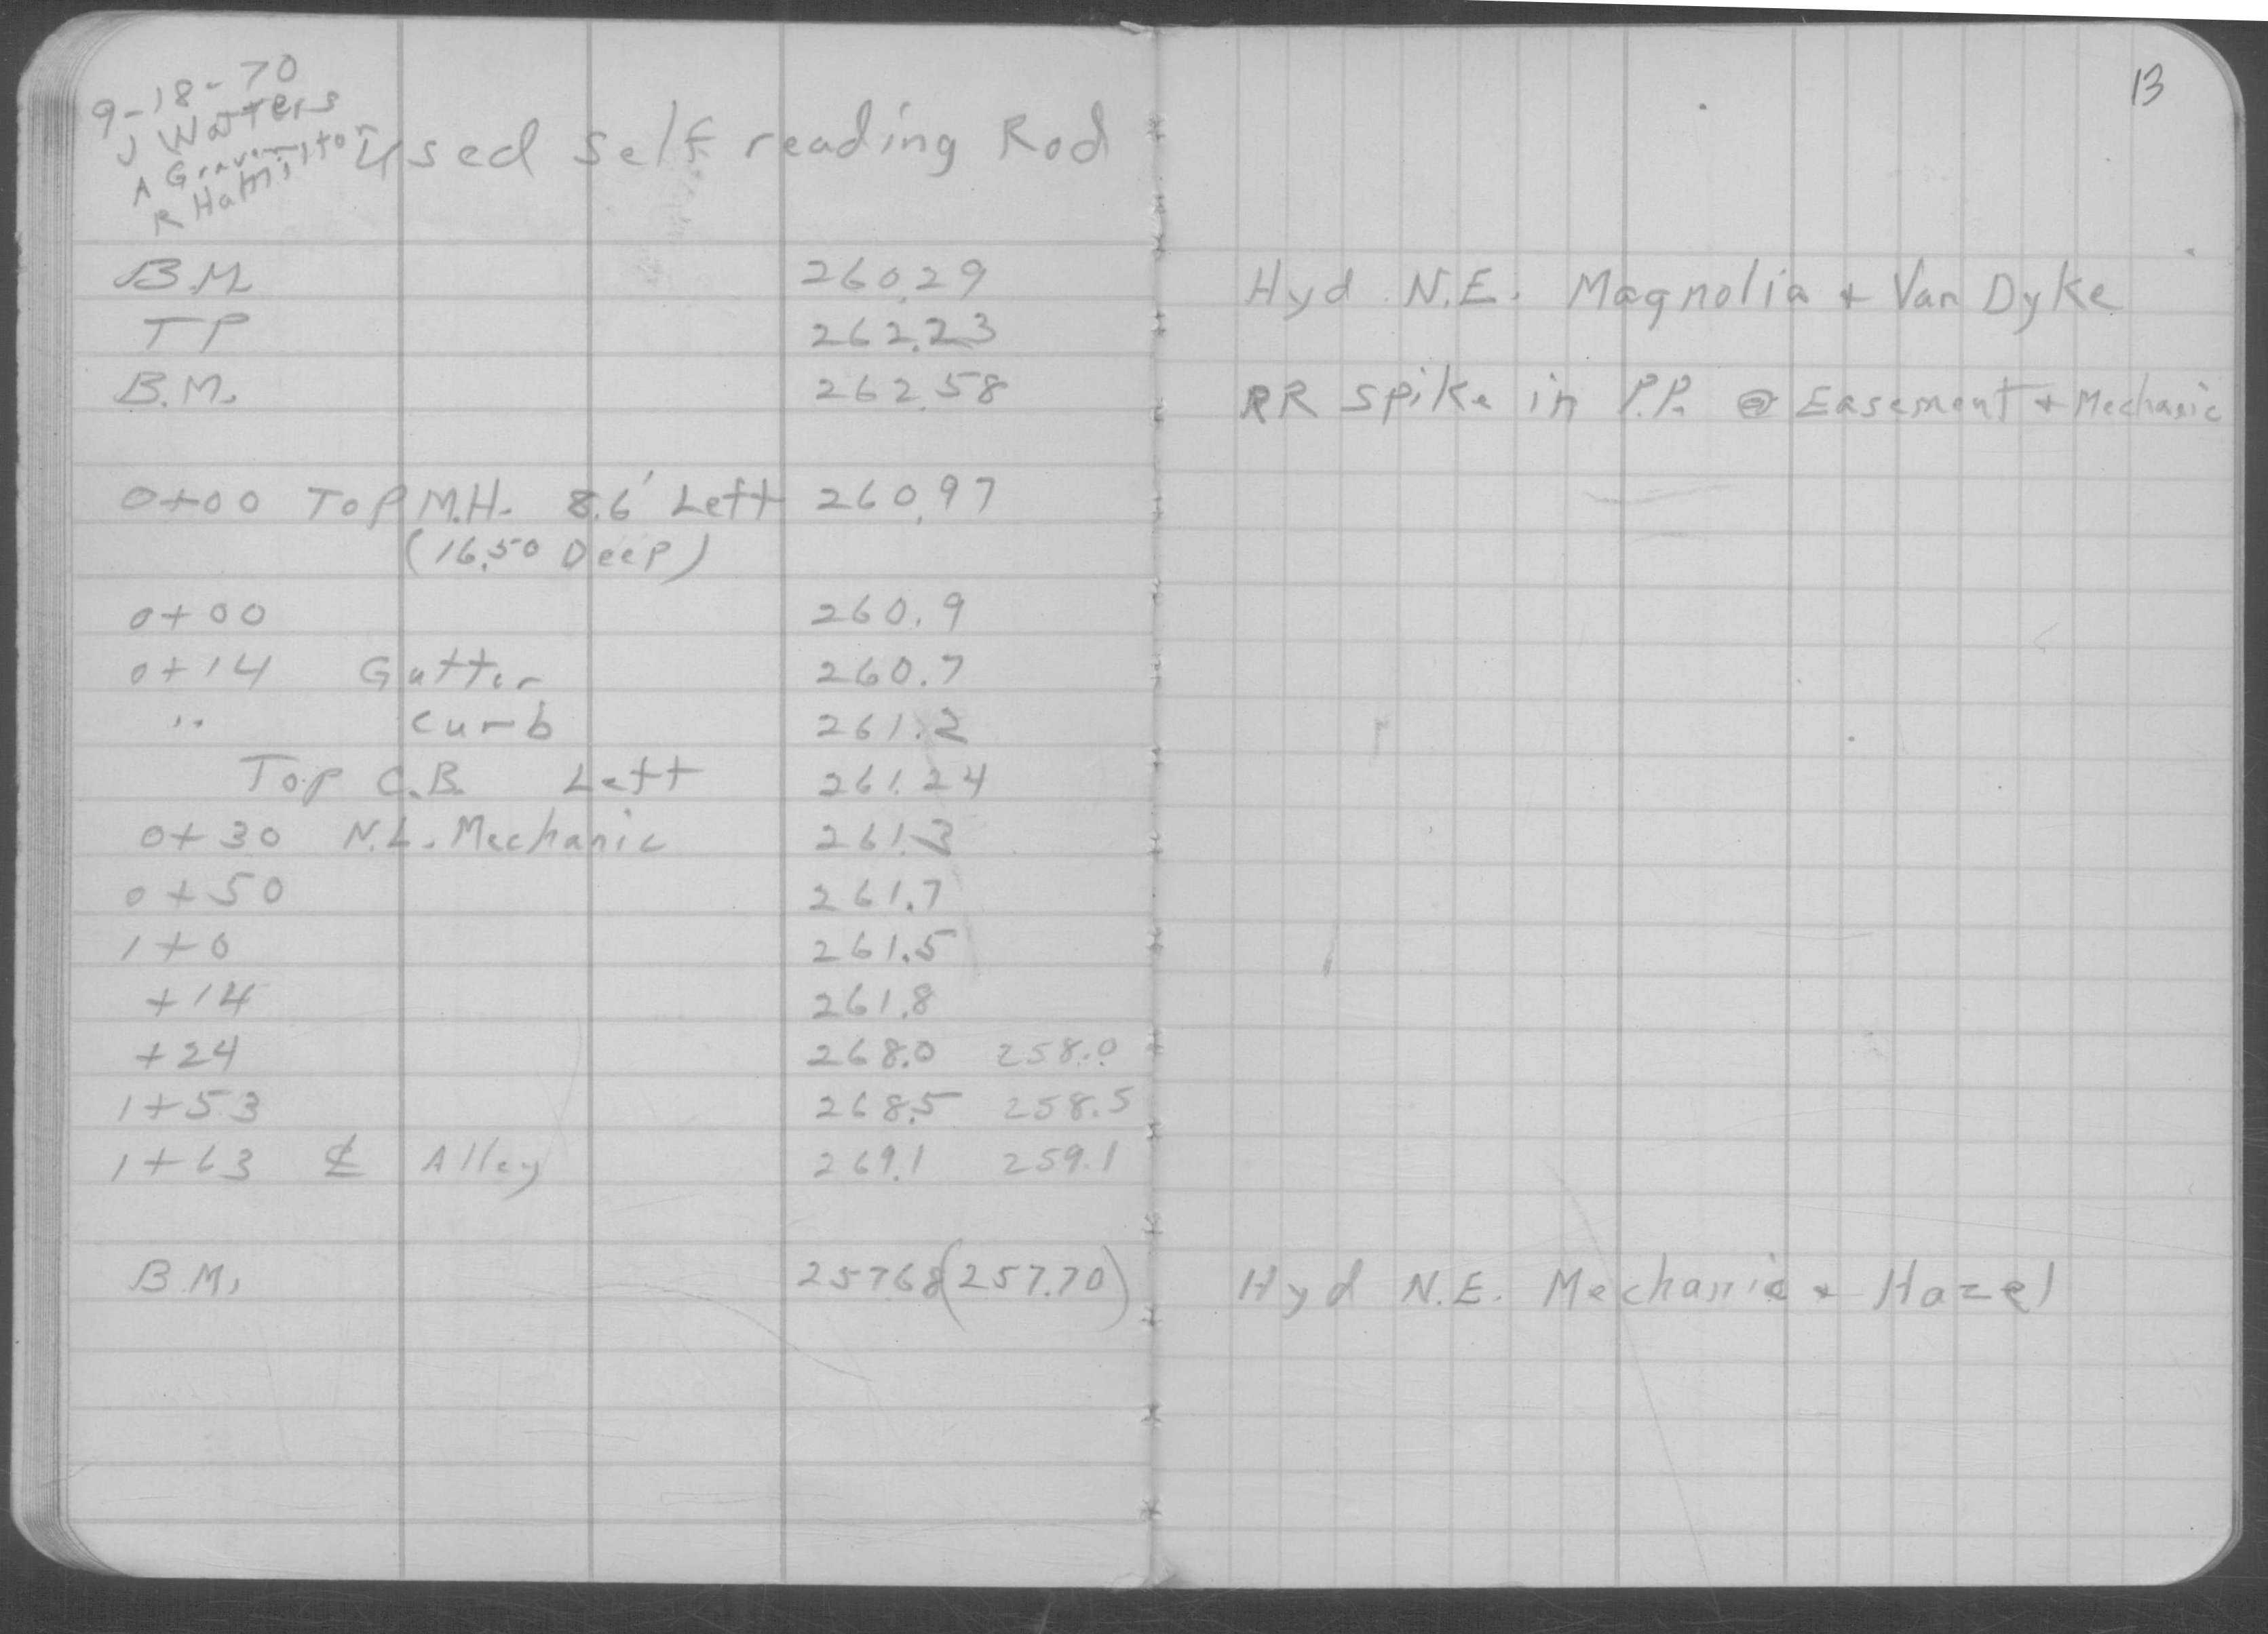 13
9-18-70
J Watters
A
R Hamilton
Used Self reading Rod
B.M. 260.29 Hyd N.E. Magnolia + Van Dyke
TP 262.23
B.M. 262.58 RR Spike in P.P. @ Easement + Mechanic
0+00 Top M.H. 8.6' Left 260.97
(16.50 Deep)
0+00 260.9
0+14 Gutter 260.7
" Curb 261.2
Top C.B. Left 261.24
0+30 N.L. Mechanic 261.3
0+50 261.7
1+0 261.5
+14 261.8
+24 268.0 258.0
1+53 268.5 258.5
1+63 ℄ Alley 269.1 259.1
B.M. 257.68 (257.70) Hyd N.E. Mechanic + Hazel